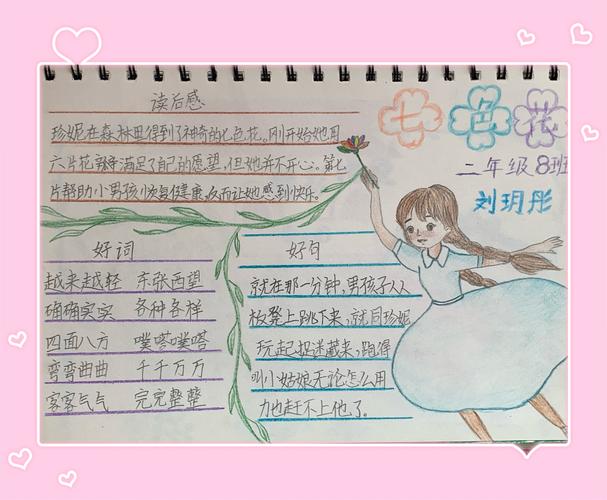 七色花
二年级8班
刘玥彤
读后感
珍妮在森林里得到了神奇的七色花。刚开始她用
六片花瓣满足了自己的愿望,但她并不开心。第七
片帮助小男孩恢复健康,反而让她感到快乐。
好词
越来越轻 东张西望
确确实实 各种各样
四面八方 噗嗒噗嗒
弯弯曲曲 千千万万
客客气气 完完整整
好句
就在那一分钟,男孩子从
板凳上跳下来,就同珍妮
玩起捉迷藏来,跑得
叫小姑娘无论怎么用
力也赶不上他了。